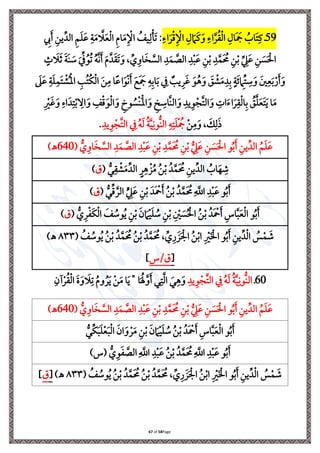 59. كِتَابُ جَمَالِ الْقُرَّاءِ وَكَمَالِ الْإِقْرَاءِ: تَأْلِيفُ الْإِمَامِ الْعَلَّامَةِ عَلَمِ الدِّينِ أَبِي
الْحَسَنِ عَلِيِّ بْنِ مُحَمَّدِ بْنِ عَبْدِ الصَّمَدِ السَّخَاوِيِّ، وَتَقَدَّمَ أَنَّهُ تُوُفِّيَ سَنَةَ ثَلَاثٍ
وَأَرْبَعِينَ وَسِتِّمِائَةٍ بِدِمَشْقَ وَهُوَ غَرِيبٌ فِي بَابِهِ جَمَعَ أَنْوَاعًا مِنَ الْكُتُبِ الْمُشْتَمِلَةِ عَلَى
مَا يَتَعَلَّقُ بِالْقِرَاءَاتِ وَالتَّجْوِيدِ وَالنَّاسِخِ وَالْمَنْسُوخِ وَالْوَقْفِ وَالِابْتِدَاءِ وَغَيْرِ
ذَلِكَ، وَمِنْ جُمْلَتِهِ النُّونِيَّةُ لَهُ فِي التَّجْوِيدِ.
عَلَمُ الدِّينِ أَبُو الْحَسَنِ عَلِيُّ بْنِ مُحَمَّدِ بْنِ عَبْدِ الصَّمَدِ السَّخَاوِيُّ (640هـ)
شِهَابُ الدِّينِ مُحَمَّدُ بْنُ مُزْهِرٍ الدِّمَشْقِيُّ (ق)
أَبُو عَبْدِ اللَّهِ مُحَمَّدُ بْنُ أَحْمَدَ بْنِ عَلِيٍّ الرَّقِّيُّ (ق)
أَبُو الْعَبَّاسِ أَحْمَدُ بْنُ الْحُسَيْنِ بْنِ سُلَيْمَانَ بْنِ يُوسُفَ الْكَفْرِيُّ (ق)
شَمْسُ الدِّينِ أَبُو الْخَيْرِ ابْنُ الْجَزَرِيِّ، مُحَمَّدُ بْنُ مُحَمَّدُ بْنُ يُوسُفُ (٨٣٣ هـ)
[ق/س]
60. النُّونِيَّةُ لَهُ فِي التَّجْوِيدِ وَهِيَ الَّتِي أَوَّلُهَا " يَا مَنْ يَرُومُ تِلَاوَةَ الْقُرْآنِ
عَلَمُ الدِّينِ أَبُو الْحَسَنِ عَلِيُّ بْنِ مُحَمَّدِ بْنِ عَبْدِ الصَّمَدِ السَّخَاوِيُّ (640هـ)
أَبُو الْعَبَّاسِ أَحْمَدُ بْنُ سُلَيْمَانَ بْنِ مَرْوَانَ الْبَعْلَبَكِّيُّ
أَبُو عَبْدِ اللَّهِ مُحَمَّدُ بْنُ عَبْدِ اللَّهِ الصَّفَوِيُّ (س)
شَمْسُ الدِّينِ أَبُو الْخَيْرِ ابْنُ الْجَزَرِيِّ، مُحَمَّدُ بْنُ مُحَمَّدُ بْنُ يُوسُفُ (٨٣٣ هـ) [ق]
67 of 58Page